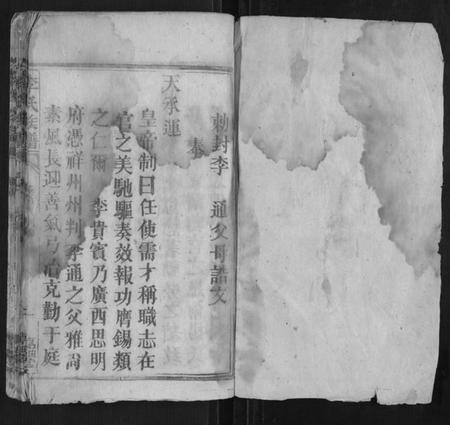 勅封李　通父母誥文
奉
天承運
皇帝制曰任使需才稱職志在
官之美馳驅奏效報功膺錫類
之仁爾　李貴賓乃廣西思明
府憑祥州州判李通之父雅尚
素風長迎善氣弓冶克勤于庭
李氏族譜